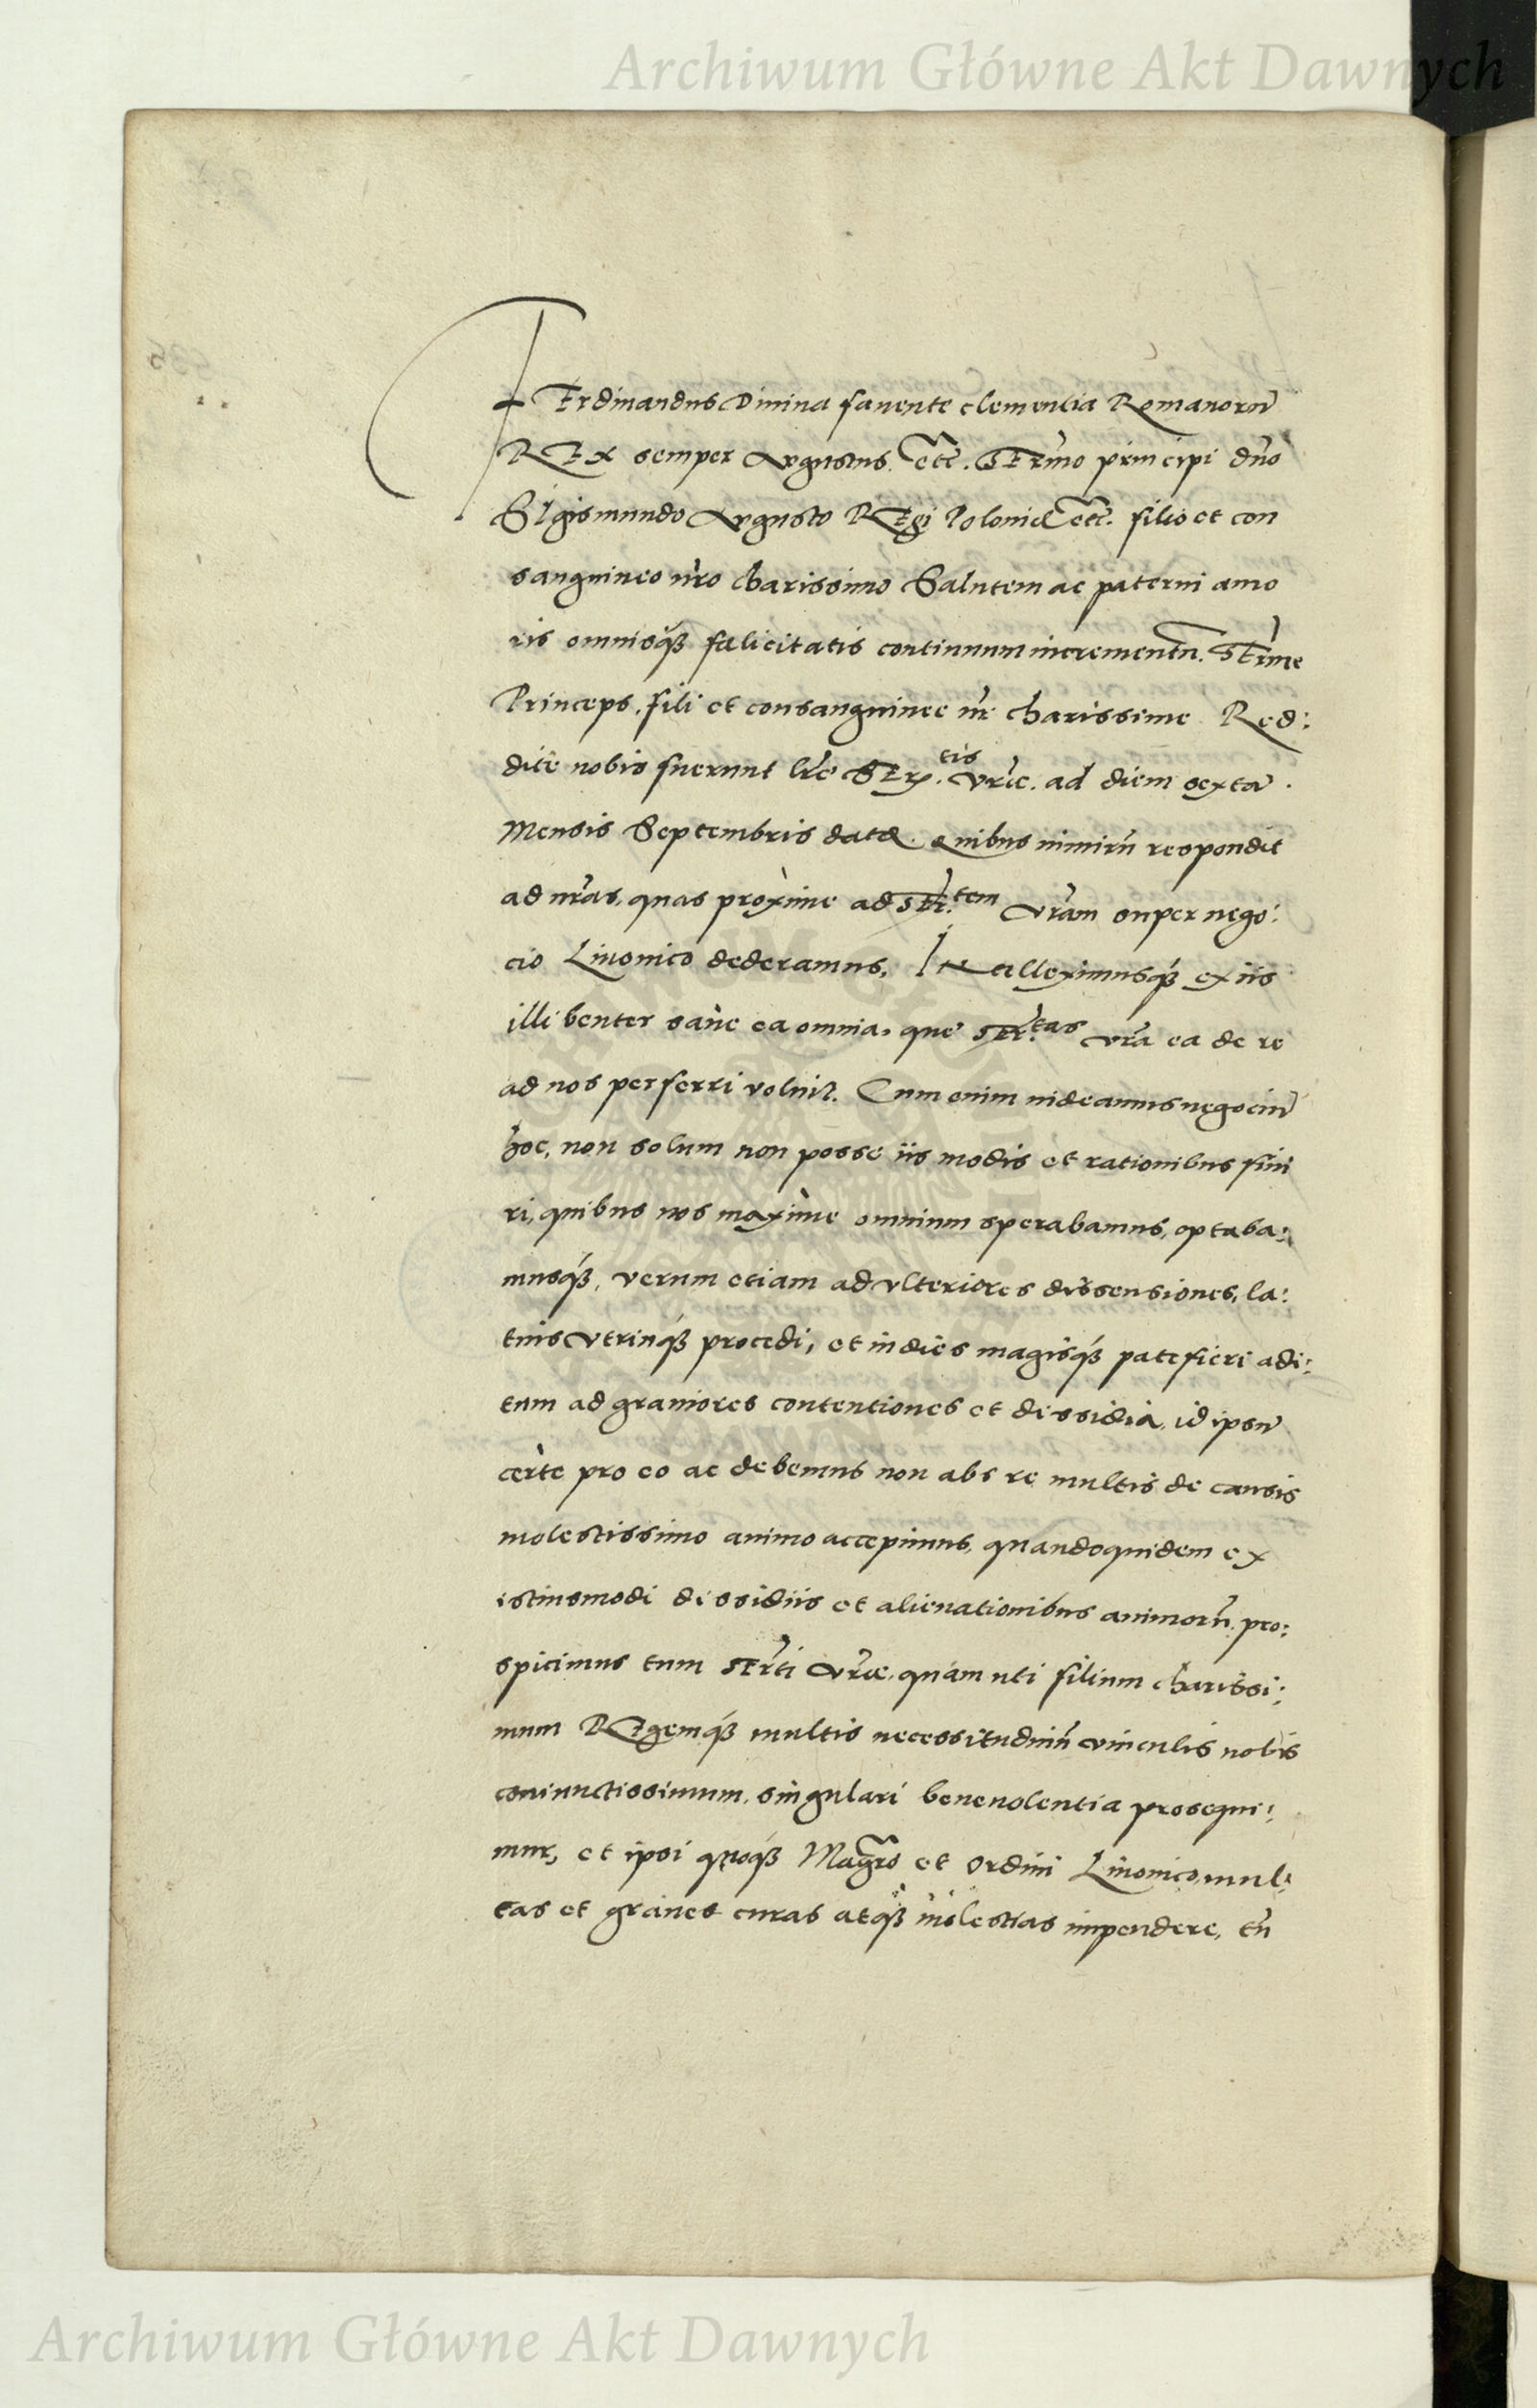 Archiwum Główne Akt Dawnych
FErdinandus Diuina fauente clementia Romanorũ
REX semper Augustus. etc̃. SErm̃o principi dño
SIgismundo Augusto REgi Poloniæ etc̃. filio et con
sanguineo nr̃o charissimo Salutem ac paterni amo
ris omnisq́ꝫ fælicitatis continuum incrementũ. SErm̃e
Princeps, fili et consanguinee nr̃ charissime Red:
ditę nobis fuerunt lr̃ę SEr.tis vrę̃. ad diem sextã.
Mensis Septembris datæ. quibus nimirũ respondit
ad nr̃as, quas proximè ad SEr.tem vr̃am super nego:
cio Liuonico dederamus, Intelleximusq́ꝫ ex iis
illibenter sanè ea omnia, quę SEr.tas vr̃a ea de re
ad nos perferri voluit. Cum enim uideamus negociũ
hoc, non solum non posse iis modis et rationibus fini
ri, quibus nos maximè omnium sperabamus, optaba:
musq́ꝫ, verum etiam ad vlteriores dissensiones, la:
tius vtrinq́ꝫ procedi, et indies magisq́ꝫ patefieri adi:
tum ad grauiores contentiones et dissidia, id ipsũ
certè pro eo ac debemus non abs re multis de causis
molestissimo animo accepimus, quandoquidem ex
istiusmodi dissidiis et alienationibus animorũ pro:
spicimus tum SEr̃ti vræ̃, quam uti filium charissi:
mum REgemq́ꝫ multis necessitudinũ vinculis nobis
coniunctissimum, singulari beneuolentia prosequi:
mur, et ipsi quoq́ꝫ Magr̃o et Ordini Liuonico, mul:
tas et graues curas atq́ꝫ molestias impendere, tũ
Archiwum Główne Akt Dawnych